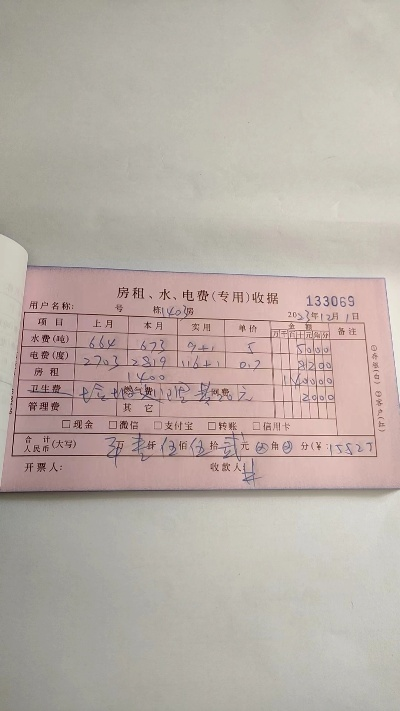 房租、水、电费(专用)收据 133069
用户名称: 号 栋1403房 2023年12月1日
项目 上月 本月 实用 单价 金额 备注
万 千 百 十 元 角 分
水费(吨) 664 673 9+1 5 5000
电费(度) 2703 2819 116+1 0.7 8200
房租 1400 140000
卫生费 网费 20元 2000
管理费 其它
□现金 □微信 □支付宝 □转账 □信用卡
合计人民币(大写) 万壹仟伍佰伍拾贰元 角 分(¥:1552
开票人: 收款人: